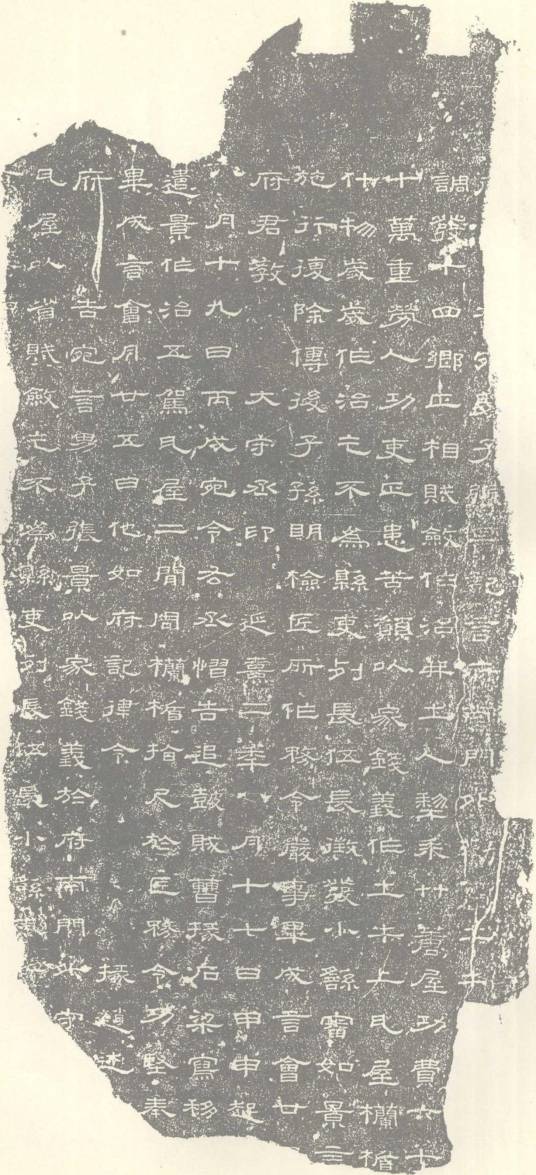 府告宛男子張景記言府南門外勸土牛
調發十四鄉正相賦斂作治并土人犂耒艹蓎屋功費六十
十萬重勞人功吏正患苦願以家錢義作土牛上瓦屋欄楯
什物歲歲作治乞不為縣吏列長伍長徵發小繇審如景言
施行復除傳後子孫明檢匠所作務令嚴事畢成言會廿
府君教 大守丞印 延熹二年八月十七日甲申起
八月十九日丙戌宛令右丞慴告追鼓賊曹掾石梁寫移
遣景作治五駕瓦屋二閒周欄楯拾尺於匠務令功堅奉
畢成言會月廿五日他如府記律令 掾趙述
府告宛言男子張景以家錢義於府南門外守
瓦屋以省賦斂乞不為縣吏列長伍長小繇